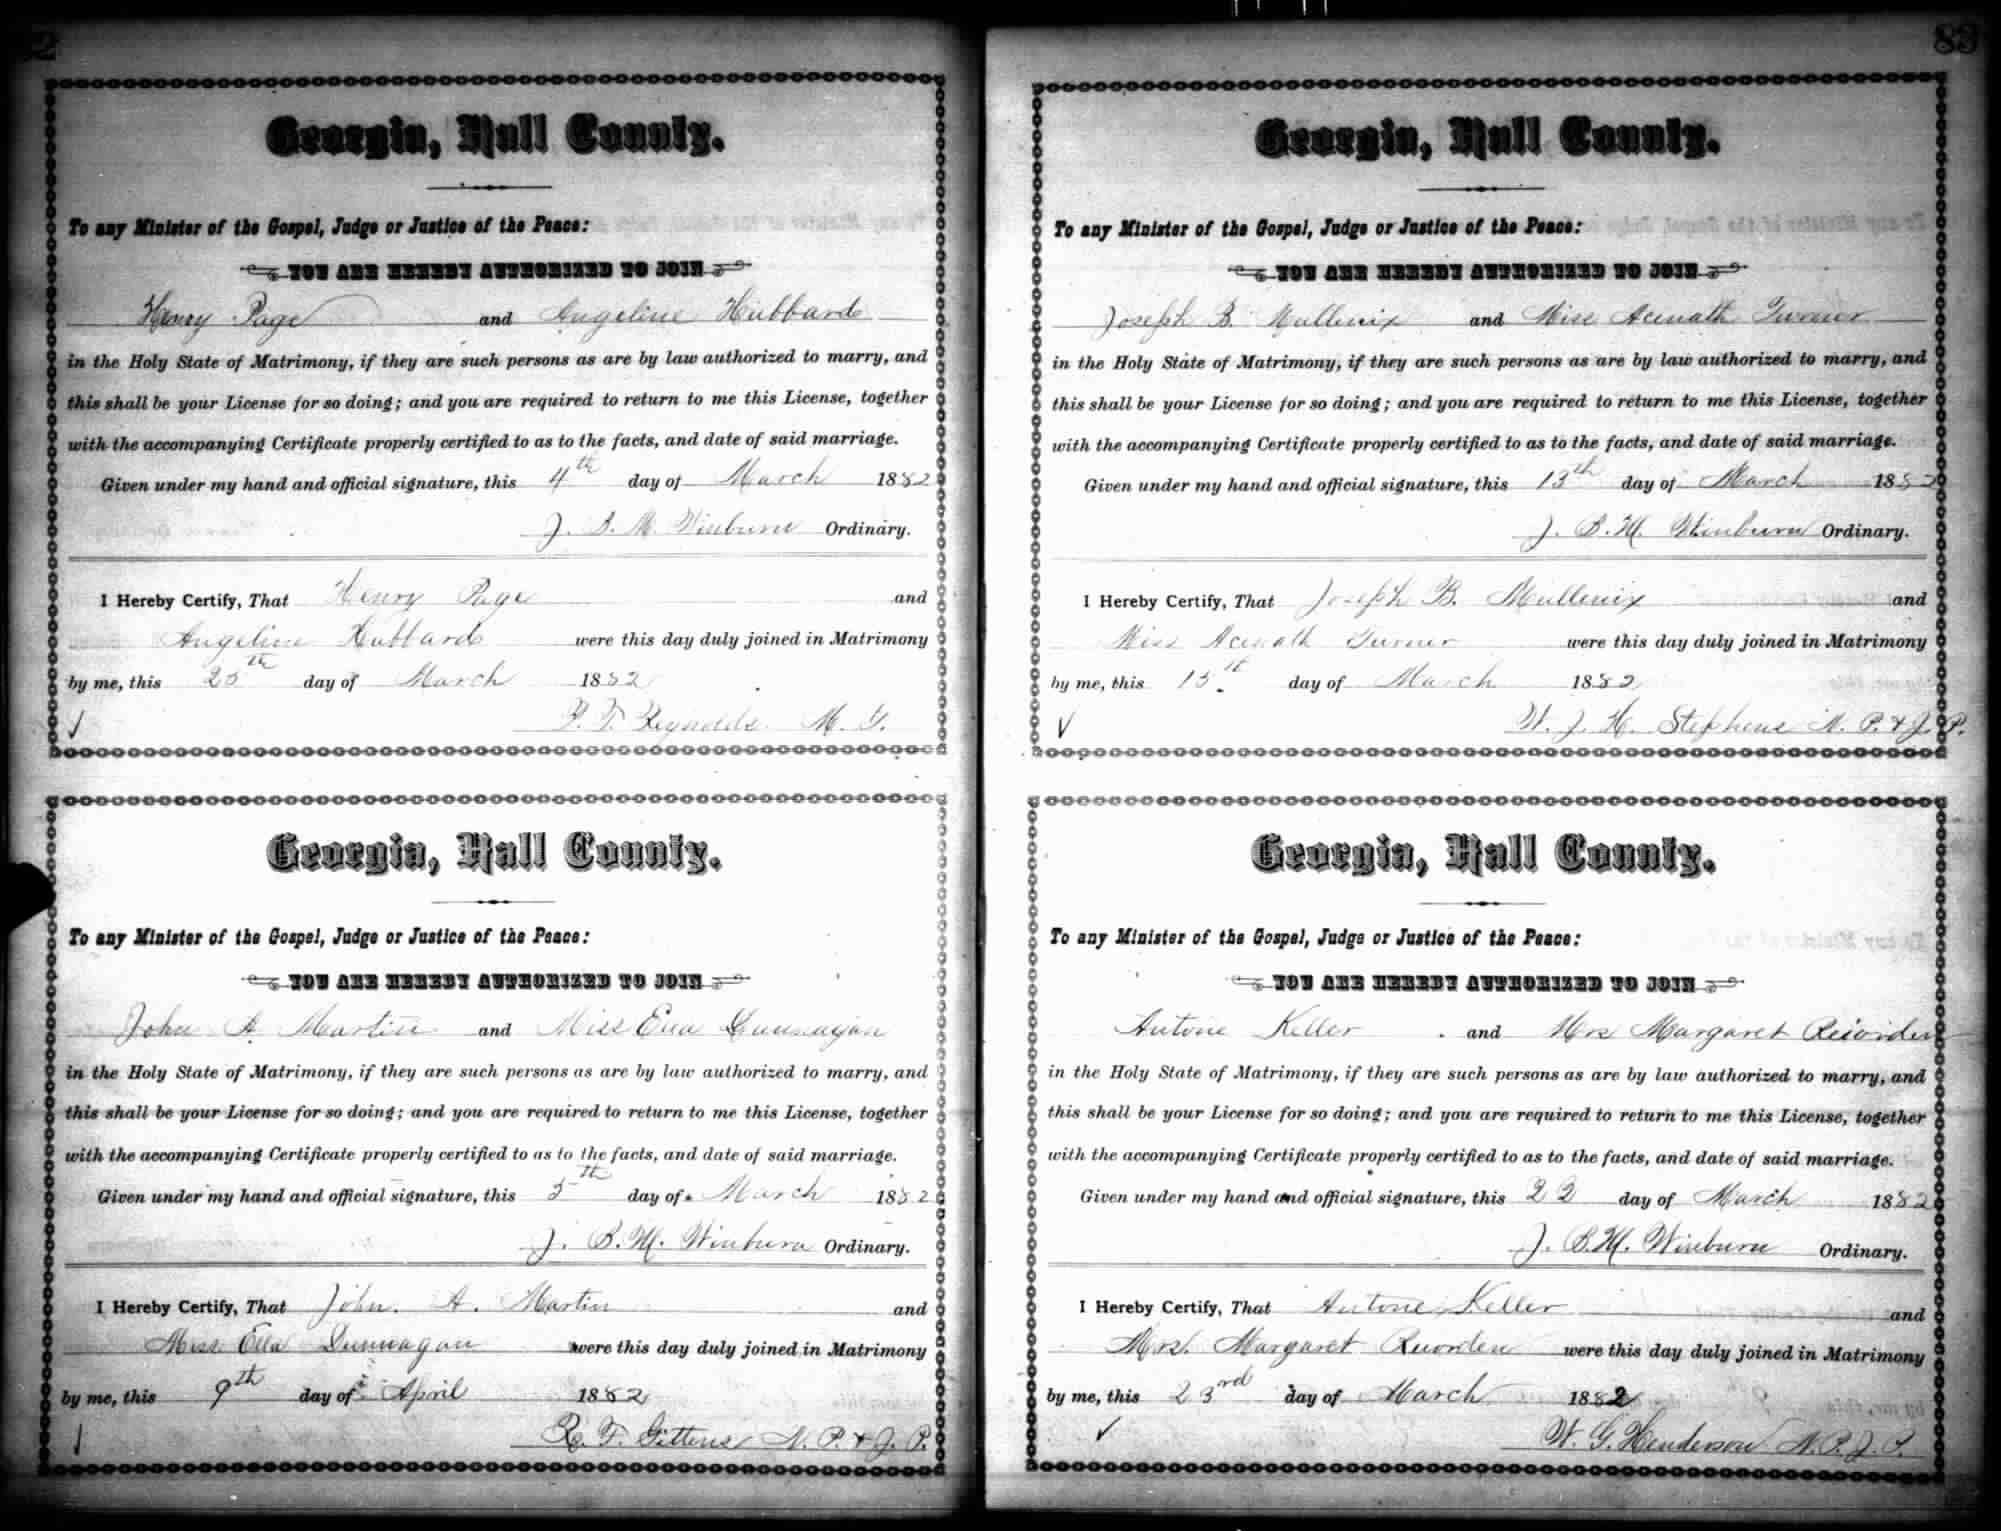 2
Georgia, Hall County.
To any Minister of the Gospel, Judge or Justice of the Peace:
YOU ARE HEREBY AUTHORIZED TO JOIN
Henry Page and Angeline Hubbard
in the Holy State of Matrimony, if they are such persons as are by law authorized to marry, and
this shall be your License for so doing; and you are required to return to me this License, together
with the accompanying Certificate properly certified to as to the facts, and date of said marriage.
Given under my hand and official signature, this 4th day of March 1882
J. B. M. Winburn Ordinary.
I Hereby Certify, That Henry Page and
Angeline Hubbard were this day duly joined in Matrimony
by me, this 25th day of March 1882
Reynolds M. G.
Georgia, Hall County.
To any Minister of the Gospel, Judge or Justice of the Peace:
YOU ARE HEREBY AUTHORIZED TO JOIN
John A Martin and Miss Ella Dunnagan
in the Holy State of Matrimony, if they are such persons as are by law authorized to marry, and
this shall be your License for so doing; and you are required to return to me this License, together
with the accompanying Certificate properly certified to as to the facts, and date of said marriage.
Given under my hand and official signature, this 5th day of March 1882
J. B. M. Winburn Ordinary.
I Hereby Certify, That John. A. Martin and
Miss Ella Dunnagan were this day duly joined in Matrimony
by me, this 9th day of April 1882
R. F. Gittens N. P. & J. P.
83
Georgia, Hall County.
To any Minister of the Gospel, Judge or Justice of the Peace:
YOU ARE HEREBY AUTHORIZED TO JOIN
Joseph B. Mullenix and Miss Acenath Turner
in the Holy State of Matrimony, if they are such persons as are by law authorized to marry, and
this shall be your License for so doing; and you are required to return to me this License, together
with the accompanying Certificate properly certified to as to the facts, and date of said marriage.
Given under my hand and official signature, this 13th day of March 1882
J. B. M. Winburn Ordinary.
I Hereby Certify, That Joseph B. Mullenix and
Miss Acenath Turner were this day duly joined in Matrimony
by me, this day of March 1882
W. J. H. Stephens N. P. & J. P.
Georgia, Hall County.
To any Minister of the Gospel, Judge or Justice of the Peace:
YOU ARE HEREBY AUTHORIZED TO JOIN
Antone Keller and Mrs Margaret Reiorden
in the Holy State of Matrimony, if they are such persons as are by law authorized to marry, and
this shall be your License for so doing; and you are required to return to me this License, together
with the accompanying Certificate properly certified to as to the facts, and date of said marriage.
Given under my hand and official signature, this 22 day of March 1882
J. B. M. Winburn Ordinary.
I Hereby Certify, That Antone Keller and
Mrs. Margaret Reiorden were this day duly joined in Matrimony
by me, this 23rd day of March 1882
W. G. Henderson N. P. J. P.